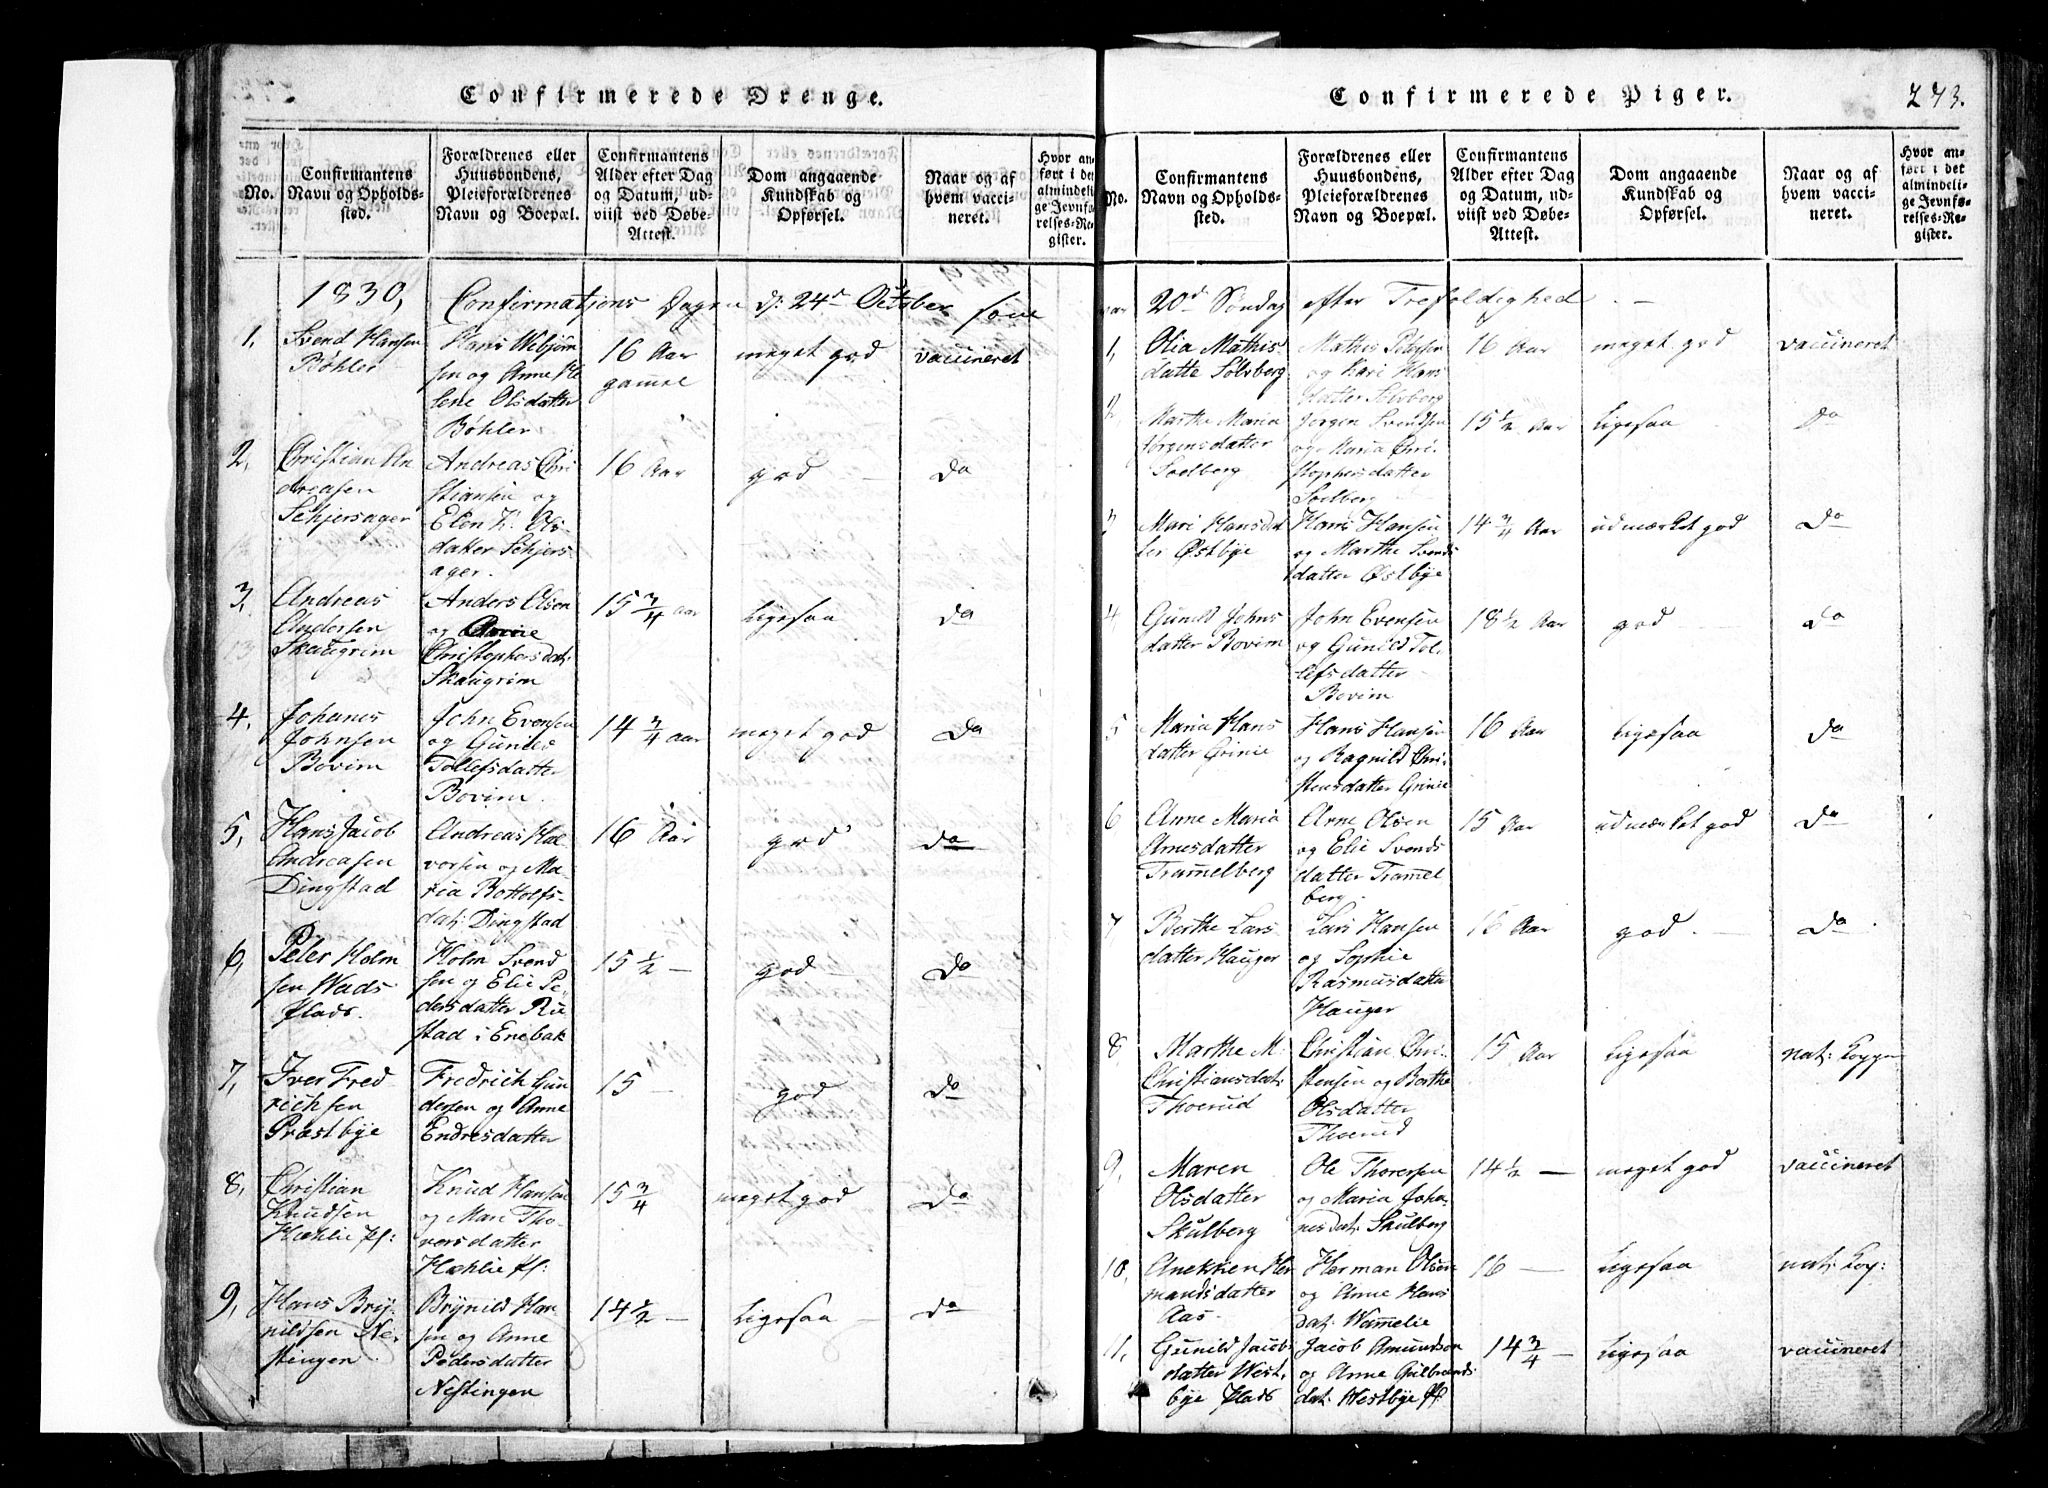 Confirmerede Drenge.
No.
Confirmantens
Navn og Opholds-
sted.
Forældrenes eller
Huusbondens,
Pleieforældrenes
Navn og Boepæl.
Confirmantens
Alder efter Dag
og Datum, ud-
viist ved Døbe-
Attest.
Dom angaaende
Kundskab og
Opførsel.
Naar og af
hvem vacci-
neret.
Hvor an-
ført i det
almindeli-
ge Jevnfø-
relses-Re-
gister.
1830, Confirmations Dagen d: 24de October som
1, Svend Hansen
Bøhler
Hans Webjørn
sen og Anne He
lene Olsdatter
Bøhler
16 Aar
gamel
meget god
vaccineret
2, Christian An
dreasen
Schjersager
Andreas Chri
stiansen og
Elen K. Ols-
datter Schjers-
ager.
16 Aar
god
do
3, Andreas
Andersen
Skaugrim
Anders Olsen
og Anne
Christophersdat:
Skaugrim
15 3/4 Aar
Ligesaa
do
4, Johanes
Johnsen
Bovim
John Evensen
og Gunild
Tollefsdatter
Bovim.
14 3/4 Aar
meget god
do
5, Hans Jacob
Andreasen
Dingstad
Andreas Hal
vorsen og Ma-
ria Botolfs-
dat: Dingstad
16 Aar
god
do
6, Peter Holm
sen Wads
Plads.
Holm Svend
sen og Elie Pe-
dersdatter Ru-
stad i Enebak
15 1/2 —
god
do
7, Iver Fred
richsen
Præstbye
Fredrich Gun
dersen og Anne
Endresdatter
15 —
god
do
8, Christian
Knudsen
Hæhlie Pl:
Knud Hansen
og Mari Tho-
versdatter
Hæhlie Pl:
15 3/4
meget god
do
9, Hans Bry-
nildsen Ne-
stingen.
Brynild Han-
sen og Anne
Pedersdatter
Nestingen
14 1/2 —
Ligesaa
do
Confirmerede Piger.
273.
No.
Confirmantens
Navn og Opholds-
sted.
Forældrenes eller
Huusbondens,
Pleieforældrenes
Navn og Boepæl.
Confirmantens
Alder efter Dag
og Datum, ud-
viist ved Døbe-
Attest.
Dom angaaende
Kundskab og
Opførsel.
Naar og af
hvem vacci-
neret.
Hvor an-
ført i det
almindeli-
ge Jevnfø-
relses-Re-
gister.
var 20de Søndag efter Trefoldighed. —
1, Olia Mathis-
datte Solberg
og Kari Hans
datter Solberg
16 Aar
meget god
vaccineret
2 Marthe Maria
Jørgensdatter
Soelberg
Jørgen Svendsen
og Maria Chri-
stophersdatter
Soelberg
15 1/2 Aar
Ligesaa
do
3 Mari Hansdat
ter Østbye
Hans Hansen
og Marthe Svends
datter Østbye
14 3/4 Aar
udmærket god
do
4 Gunild Johns
datter Bovim
John Evensen
og Gunild Tol-
lefsdatter
Bovim
18 1/2 Aar
god
do
5 Maria Hans
datter Grinie
Hans Hansen
og Ragnild Chri-
stensdatter Grinie
16 Aar
Ligesaa
do
6 Anne Maria
Arnesdatter
Tramelberg
Arne Olsen
og Elie Svends
datter Tramel
berg.
15 Aar
udmærket god
do
7 Berthe Lars
datter Hauger
Lars Hansen
og Sophie
Rasmusdatter
Hauger
16 Aar
god.
do
8 Marthe M:
Christiansdat:
Thoerud
Christian Chri-
stensen og Berthe
Olsdatter
Thoerud
15 Aar
Ligesaa
nat: Kopper
9, Maren
Olsdatter
Skulberg
Ole Thoresen
og Maria Joha-
nesdat: Skulberg
14 1/2 —
meget god
vaccineret
10, Anekken Her
mandsdatter
Aas.
Herman Olsen
og Anne Hans
dat: Wamelie
16 —
Ligesaa
nat: Kop:
11, Gunild Jacobs
datter West-
bye Plads
Jacob Amundsen
og Anne Gulbrands
dat: Westbye Pl
14 3/4 —
Ligesaa
vaccineret